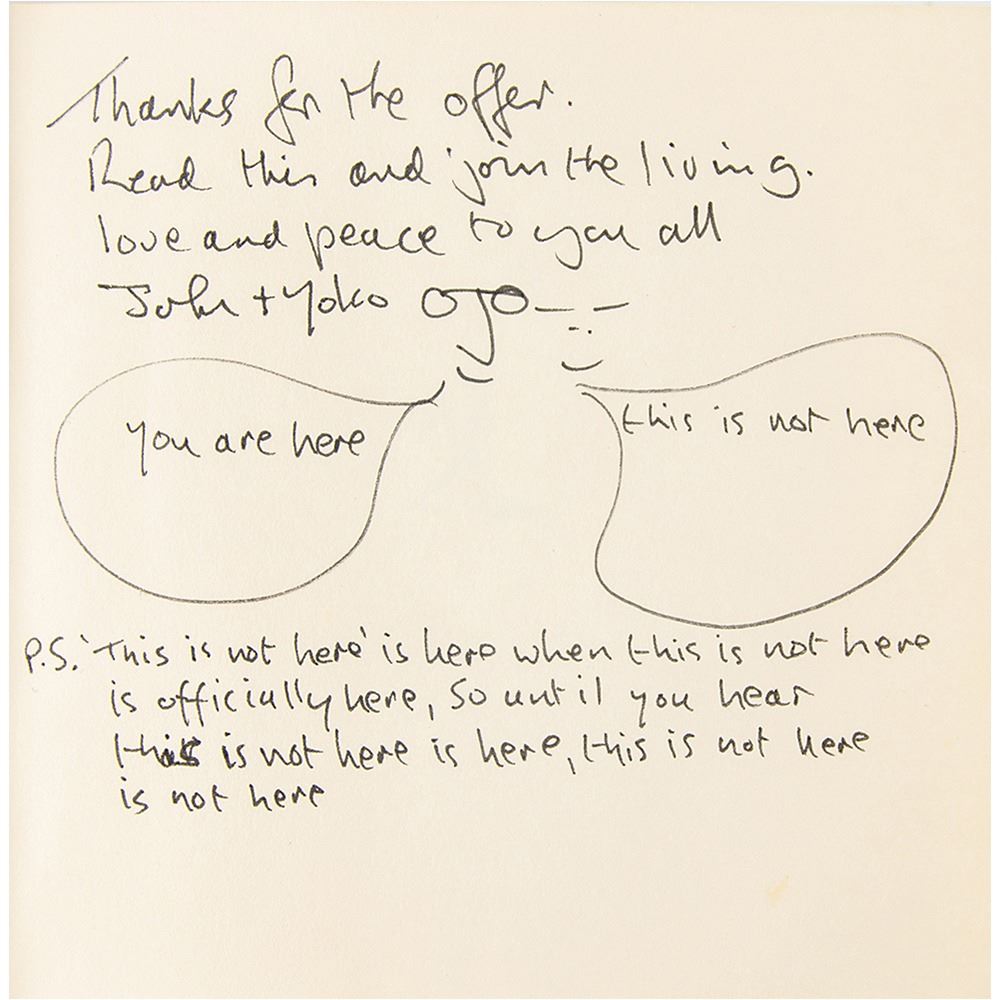 Thanks for the offer.
Read this and join the living.
love and peace to you all
John + Yoko
you are here
this is not here
P.S. 'This is not here' is here when this is not here
is officially here, So until you hear
this is not here is here, this is not here
is not here